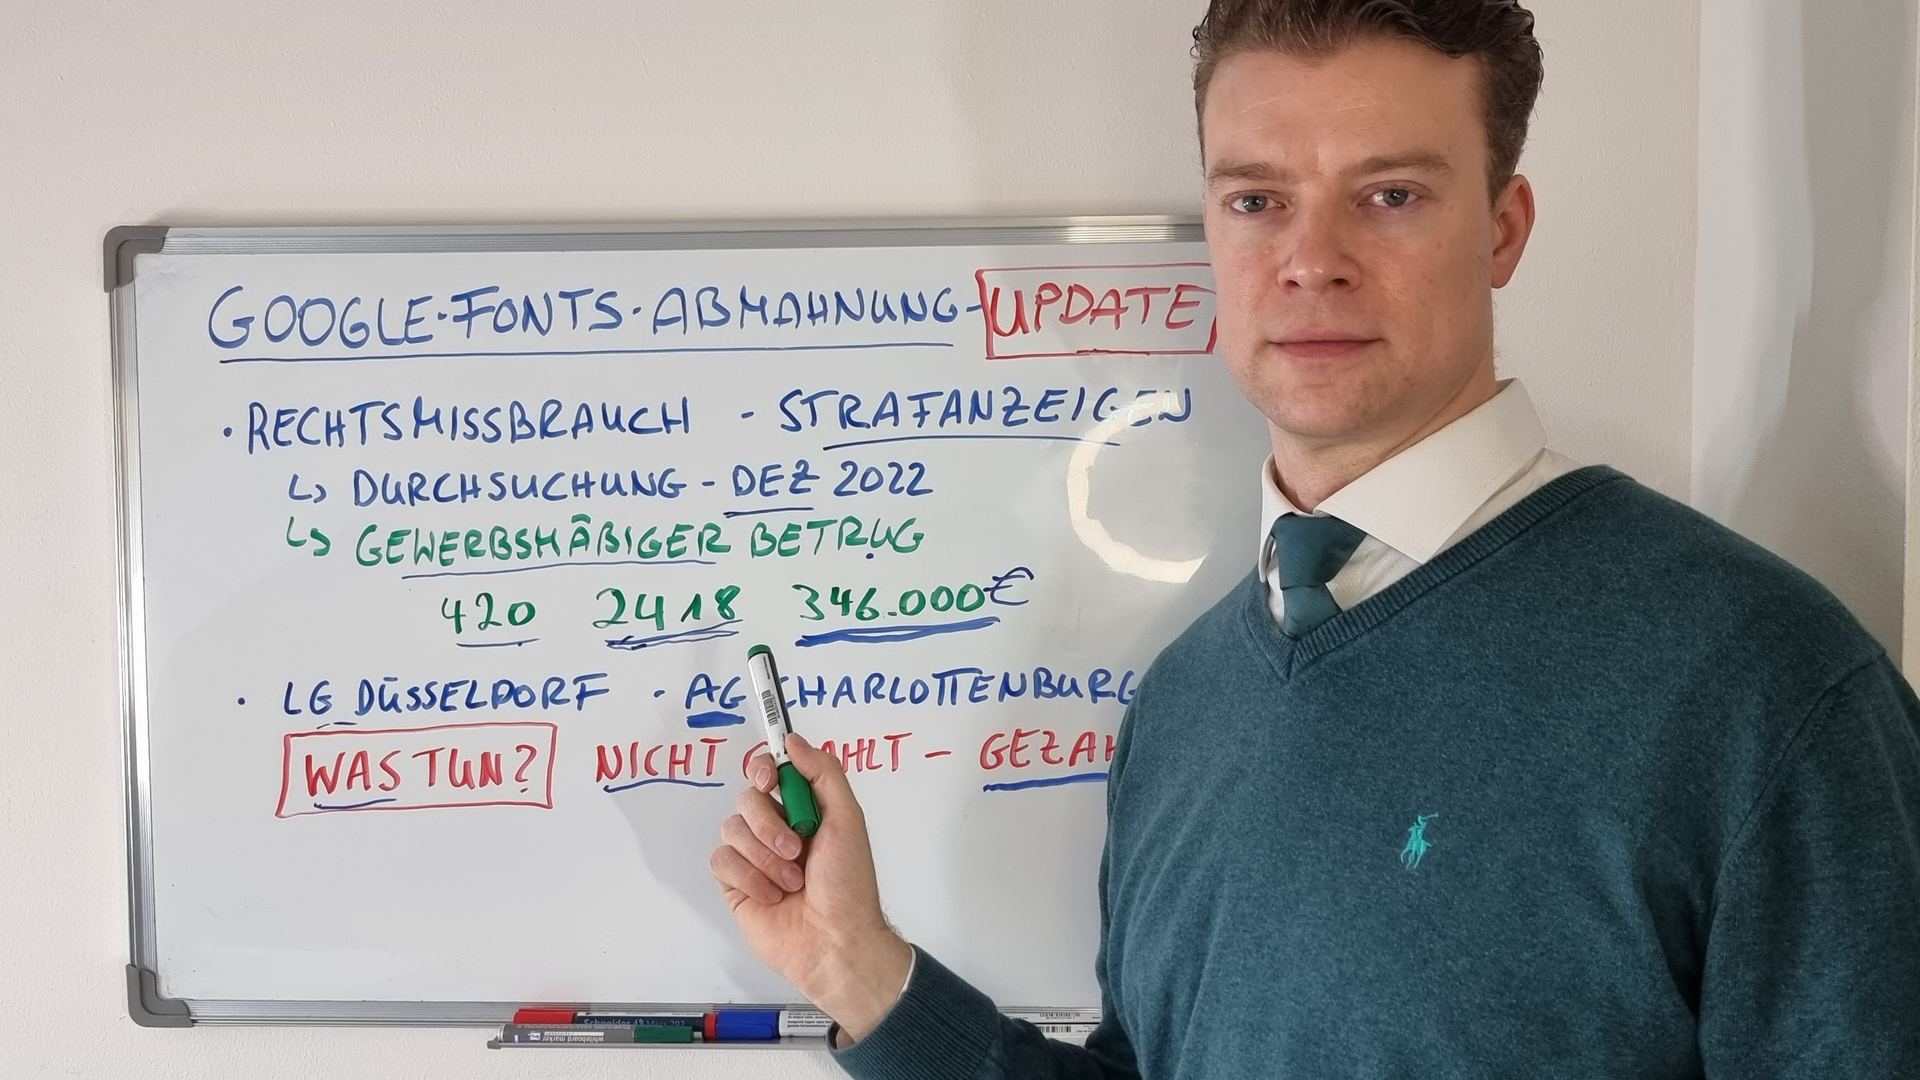 GOOGLE-FONTS-ABMAHNUNG-UPDATE
• RECHTSMISSBRAUCH - STRAFANZEIGEN
↳ DURCHSUCHUNG - DEZ 2022
↳ GEWERBSMÄßIGER BETRUG
420 2418 346.000€
• LG DÜSSELDORF - AG CHARLOTTENBURG
WAS TUN? NICHT - 
Schneider
whiteboard marker